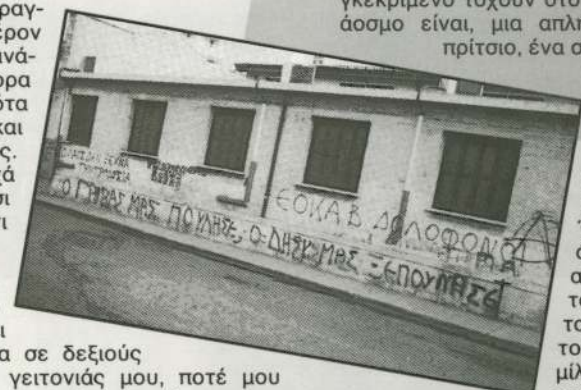 ραγ-
ερον
νά-
ορα
ότα
και
ς.
χά
σι
τι
ι
α σε δεξιούς
γειτονιάς μου, ποτέ μου
γκεκριμένο τοχουν στο
άοσμο είναι, μια απλη
πρίτσιο, ένα α
ΕΟΚΑ Β ΔΟΛΟΦΟΝΟΙ
Ο ΓΡΙΒΑΣ ΜΑΣ ΠΟΥΛΗΣΕ, Ο ΔΗΣΥ ΜΑΣ ΞΕΠΟΥΛΗΣΕ
α
το
το
το
μίλ